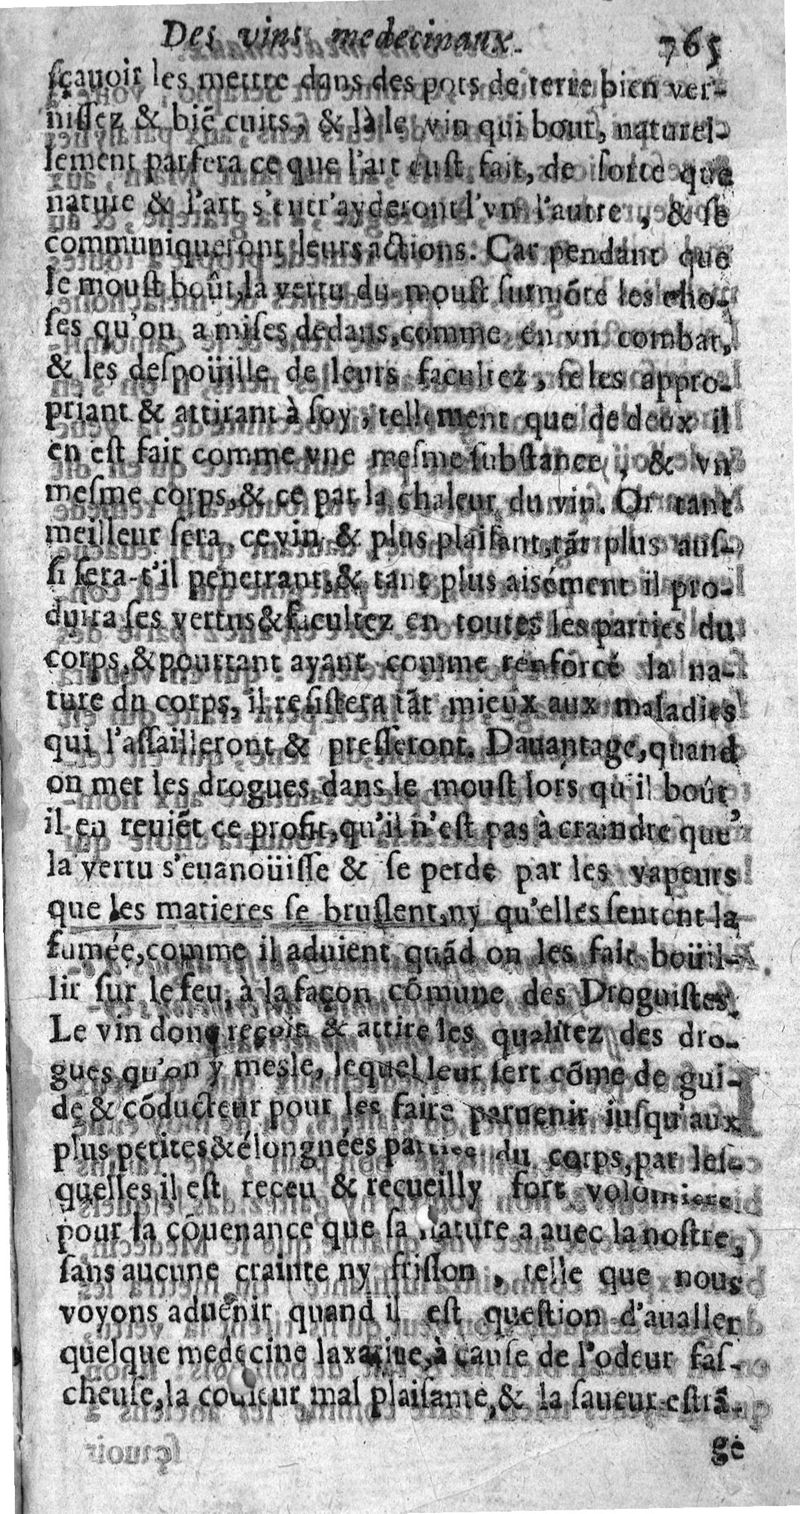 Des vins medecinaux. 765
sçauoir les mettre dans des pots de terre bien ver-
nissez & biē cuits, & là le vin qui bout, naturel-
lement parfera ce que l'art eust fait, de sorte que
nature & l'art s'entr'ayderont l'vn l'autre, & se
communiqueront leurs actions. Car pendant que
le moust boût, la vertu du moust surmōte les cho-
ses qu'on a mises dedans, comme en vn combat,
& les despoüille de leurs facultez, se les appro-
priant & attirant à soy, tellement que de deux il
en est fait comme vne mesme substance, & vn
mesme corps, & ce par la chaleur du vin. Or tant
meilleur sera ce vin & plus plaisant, tāt plus aus-
si sera-t'il penetrant, & tant plus aisément il pro-
duira ses vertus & facultez en toutes les parties du
corps, & pourtant ayant comme renforcé la na-
ture du corps, il resistera tāt mieux aux maladies
qui l'assailleront & presseront. Dauantage, quand
on met les drogues dans le moust lors qu'il boût
il en reuiēt ce profit, qu'il n'est pas à craindre que
la vertu s'euanoüisse & se perde par les vapeurs
que les matieres se bruslent, ny qu'elles sentent la
fumée, comme il aduient quād on les fait boüil-
lir sur le feu, à la façon cōmune des Droguistes.
Le vin donq reçoit & attire les qualitez des dro-
gues qu'on y mesle, lequel leur sert cōme de gui-
de & cōducteur pour les faire paruenir iusqu'aux
plus petites & élongnées parties du corps, par les-
quelles il est receu & recueilly fort volontiers
pour la cōuenance que sa nature a auec la nostre,
sans aucune crainte ny frisson, telle que nous
voyons aduenir quand il est question d'aualler
quelque medecine laxatiue, à cause de l'odeur fas-
cheuse, la couleur mal plaisante, & la saueur estrā-
ge